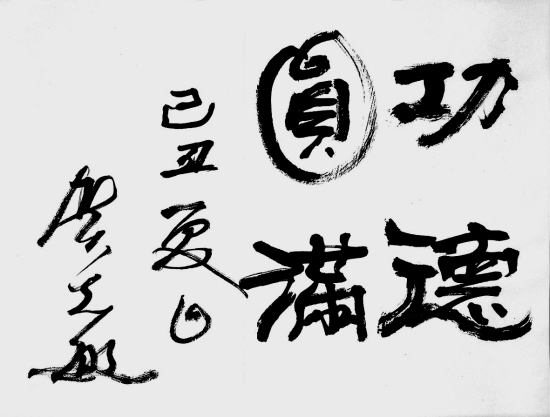 功德
圓滿
己丑夏日
贺